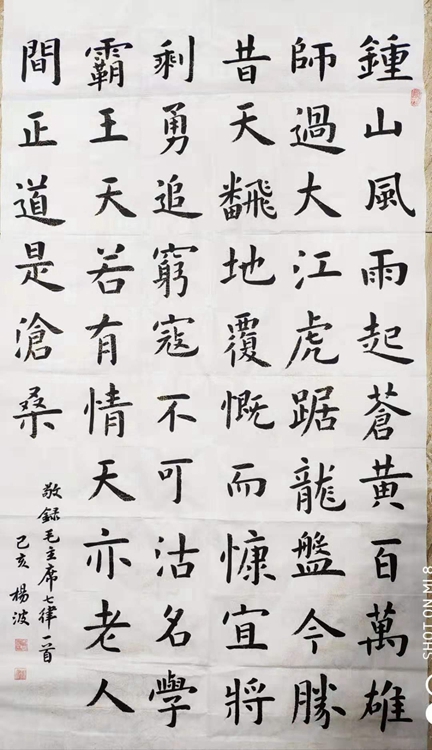 鍾山風雨起蒼黃百萬雄
師過大江虎踞龍盤今勝
昔天飜地覆慨而慷宜將
剩勇追窮寇不可沽名學
霸王天若有情天亦老人
間正道是滄桑
敬錄毛主席七律一首
己亥 楊波
SHOT ON MI 8